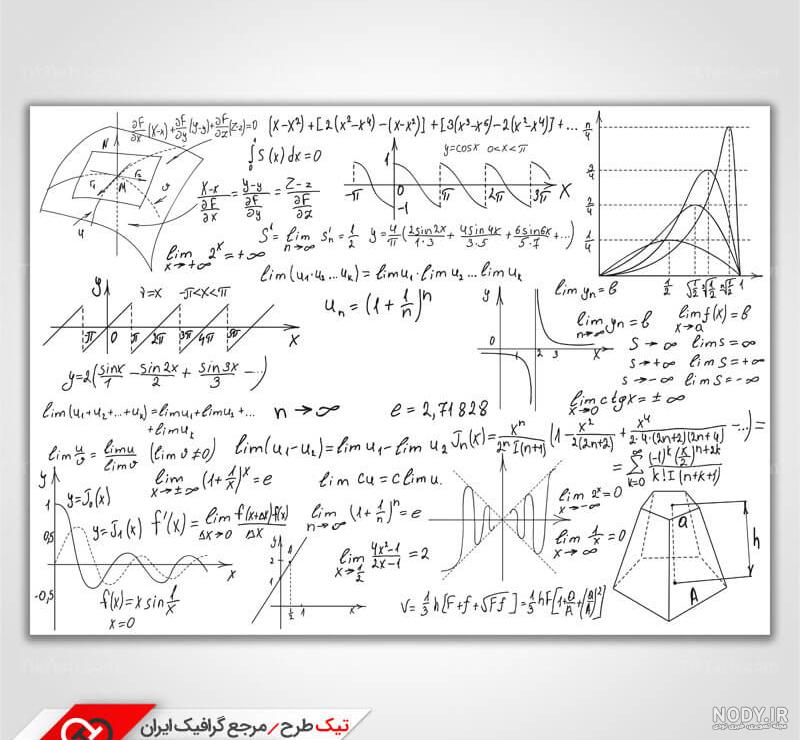 N
∂F/∂x (X-x) + ∂F/∂y (Y-y) + ∂F/∂z (Z-z) = 0
(x-x²) + [2(x²-x⁴) - (x-x²)] + [3(x³-x⁶) - 2(x²-x⁴)] + ...
∫ S(x)dx = 0
(X-x)/(∂F/∂x) = (Y-y)/(∂F/∂y) = (Z-z)/(∂F/∂z)
M
y=cosx 0<x<π
1
0
-1
-π π 2π 3π X
1/4
1/2 1
S' = lim n→∞ S'n = 1/2
y = 4/π (2sin2x/1·3 + 4sin4x/3·5 + 6sin6x/5·7 + ...)
lim x→+∞ 2ˣ = +∞
lim(u₁·u₂...uk) = lim u₁·lim u₂...lim uk
lim yn = b
y -π<x<π
-π 0 π 2π 3π 4π 5π x
un = (1 + 1/n)ⁿ
y
0 1 2 3 x
lim n→∞ yn = b
lim x→a f(x) = b
S → ∞ lim S = ∞
S → +∞ lim S = +∞
S → -∞ lim S = -∞
y = 2(sinx/1 - sin2x/2 + sin3x/3 - ...)
lim x→0 ctgx = ± ∞
lim(u₁+u₂+...+uk) = lim u₁ + lim u₂ + ...
n → ∞
e = 2,71828
lim u/v = lim u/lim v (lim v ≠ 0)
lim(u₁-u₂) = lim u₁ - lim u₂
Jn(x) = xⁿ/2ⁿ Γ(n+1) (1 - x²/2(2n+2) + x⁴/2·4·(2n+2)(2n+4) - ...) =
= ∞ Σ k=0 (-1)ᵏ(x/2)ⁿ⁺²ᵏ/k! Γ(n+k+1)
lim x→±∞ (1 + 1/x)ˣ = e
lim cu = c lim u.
y
1
0,5
-0,5
x
y=J₀(x)
y=J₁(x)
f'(x) = lim Δx→0 f(x+Δx)-f(x)/Δx
lim n→∞ (1 + 1/n)ⁿ = e
lim x→-∞ 2ˣ = 0
lim x→∞ 1/x = 0
y
2
1
1/2 1
lim x→1/2 4x²-1/2x-1 = 2
a
h
A
f(x) = x sin 1/x
x=0
V = 1/3 h[F + f + √Ff] = 1/3 hF[1 + a/A + (a/A)²]
تیک طرح / مرجع گرافیک ایران
NODY.IR